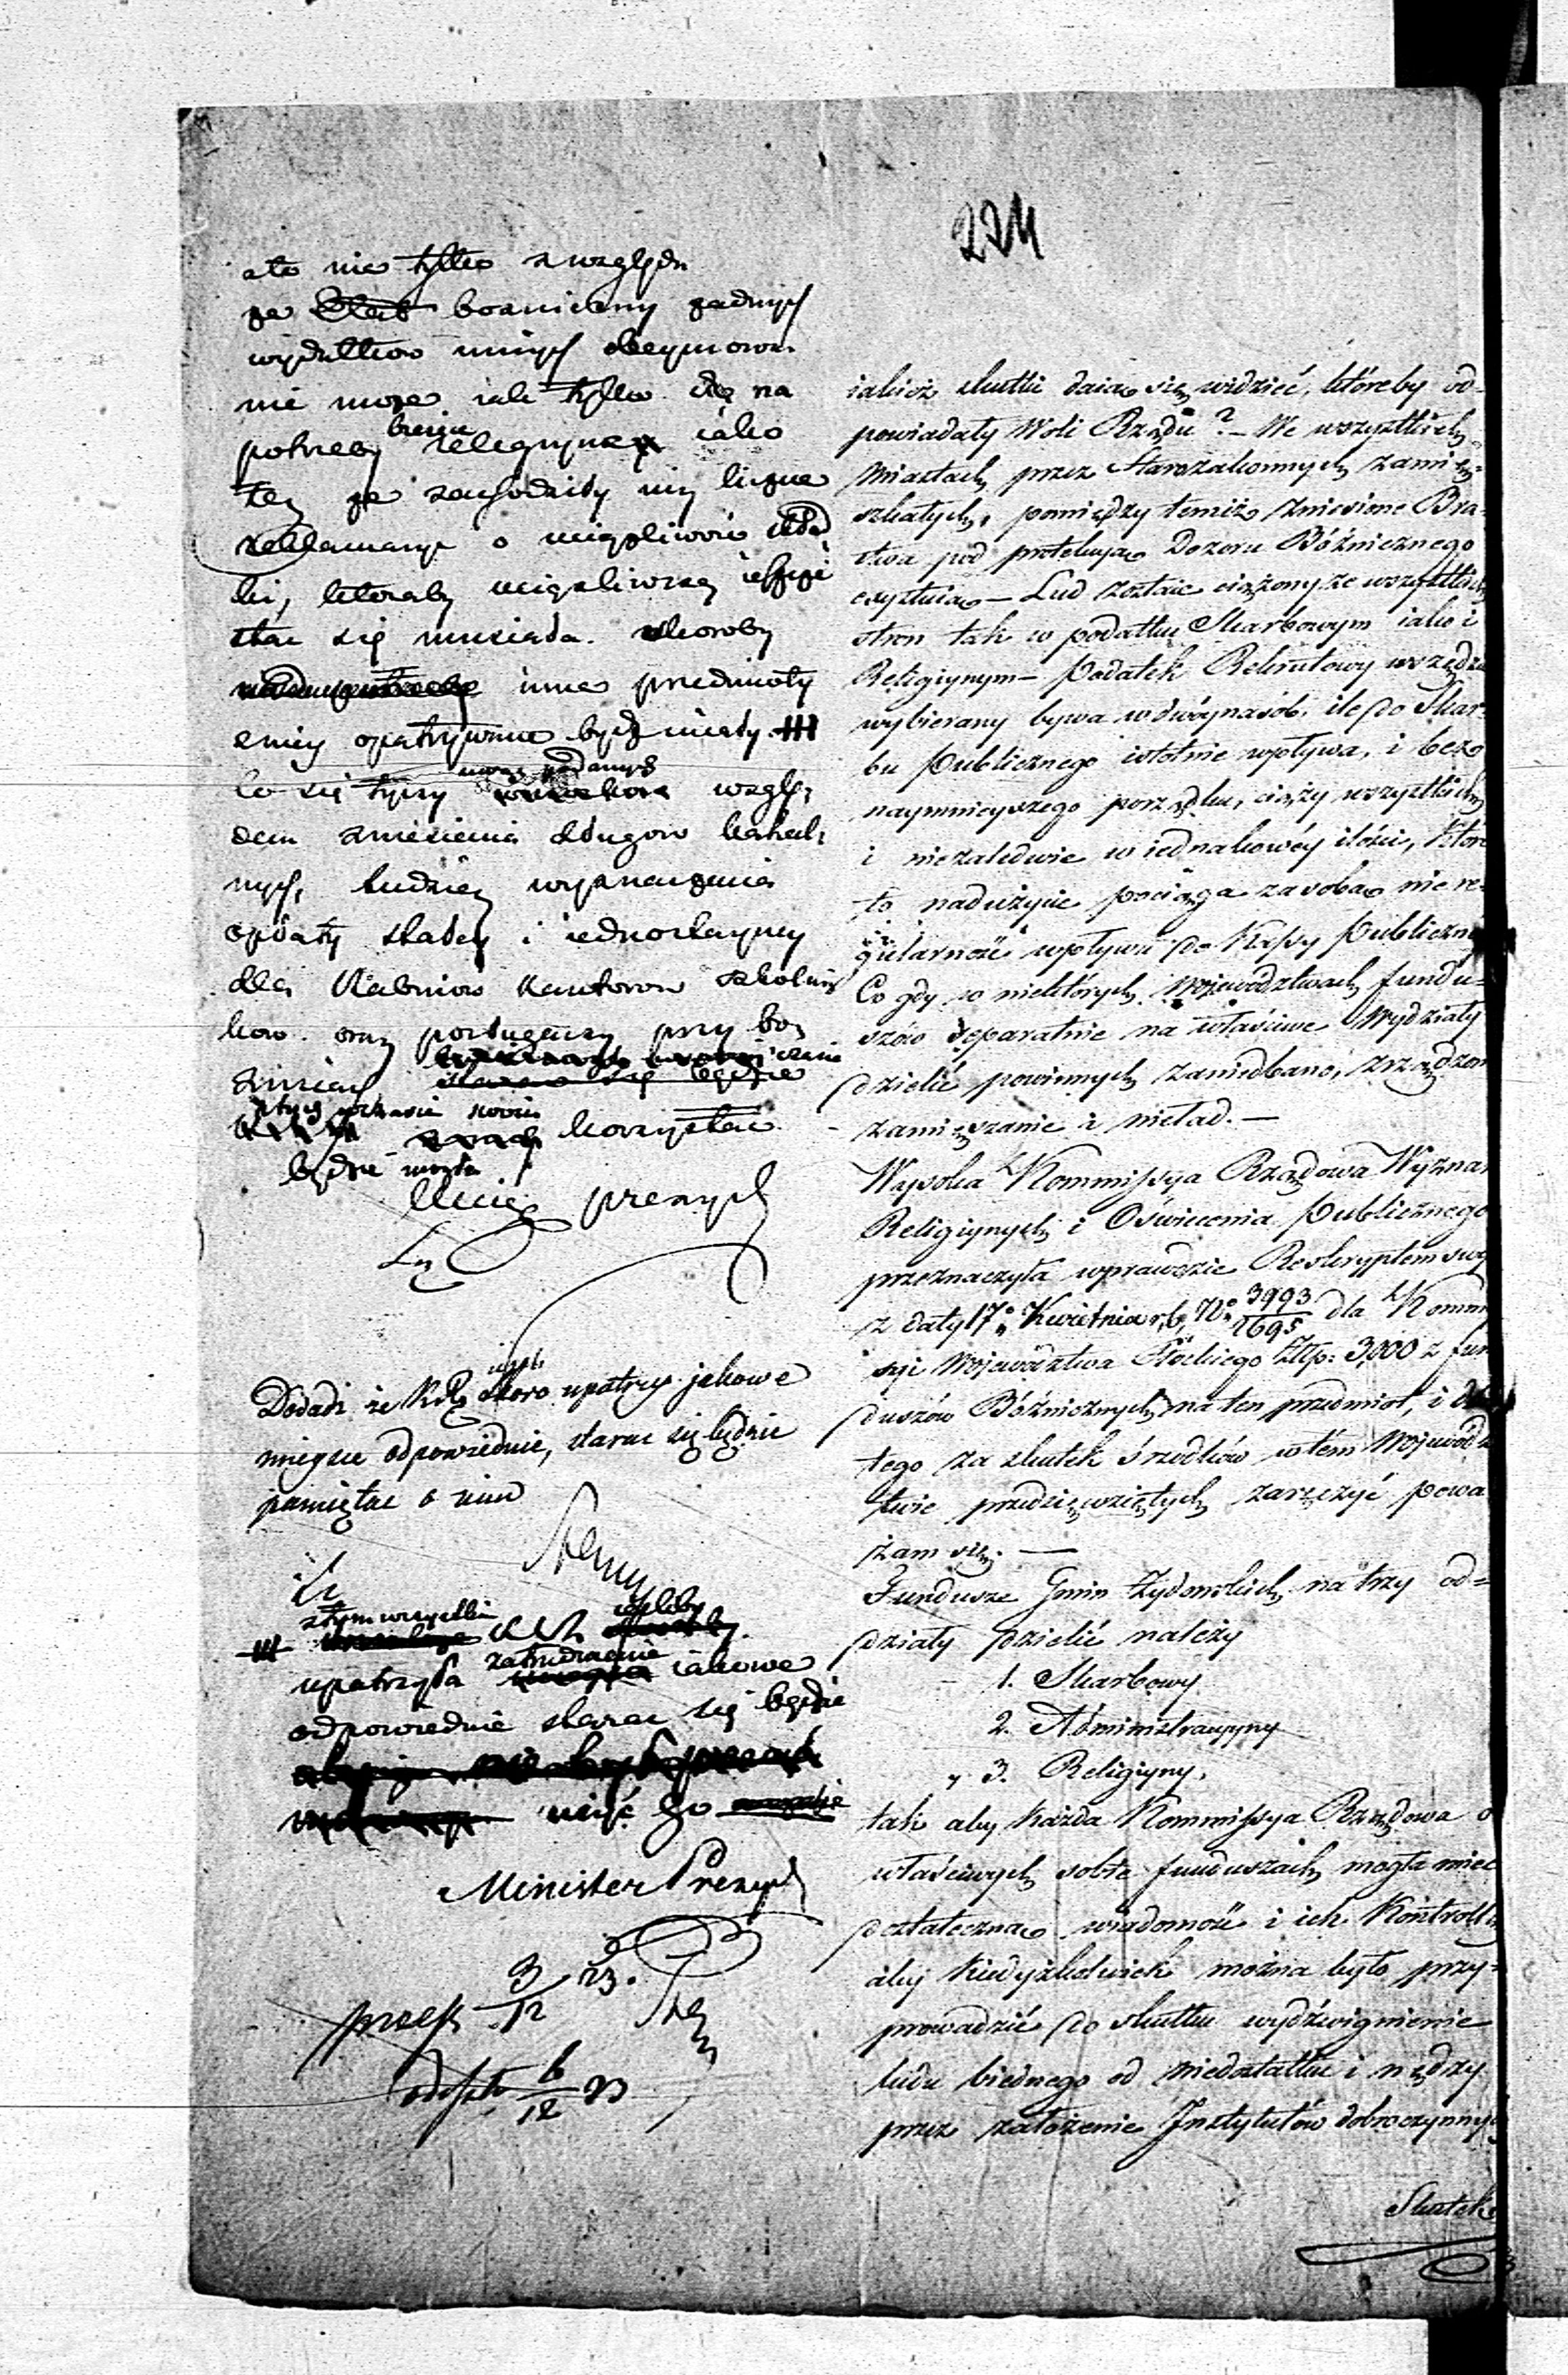 224
a to nie tylko z względu
że bożniczny żadnych
wydatków innych obeymować
nie może iak tylko na
potrzeby religiyne iako
też że zachodziły iuż liczne
reklamacye o uciążliwość skład
ki, któraby uciążliwszą ieszcze
stać się musiała skoroby
inne przedmioty
z niey opatrywane być miały
Co się tyczy uwag podanych wzglę
dem zniesienia długów kahal
nych, tudzież wyznaczenia
opłaty stałey i iednostayney
dla Rabinów Kantorów szkolni
ków oraz posługaczy przy bo
żnicach
z tych w czasie swoim korzystać
będzie mogła
Dodać że KR skoro upatrzy jakowe
mieysce odpowiednie, starać się będzie
pamiętać o nim
z tym wszystkim
upatrzyła zatrudnienie iakowe
odpowiednie starać się będzie
użyć go
Minister Prezyd
3/12 23.
6/12 23
iakież skutki daią się widzieć, któreby od-
powiadały Woli Rządu? – We wszystkich
Miastach przez Starozakonnych zamie-
szkałych, pomiędzy temiż zniesione Bra-
ctwa pod protekcyą Dozoru Bóżnicznego
exystuią – Lud zostaie ciążony ze wszystkich
stron tak w podatku Skarbowym iako i
Religiynym – Podatek Rekrutowy wszędzie
wybierany bywa w dwóynasób, ile do Skar-
bu Publicznego istotnie wpływa, i bez
naymnieyszego porządku, ciąży wszystkich
i niezaledwie w iednakowéy ilości, które
to nadużycie pociąga za sobą nie re-
gularność wpływu do Kassy Publiczney
Co gdy w niektórych Województwach fundu-
szów separatnie na właściwe Wydziały
dzielić powinnych zaniedbano, zrządzono
zamięszanie i nieład. –
Wysoka Kommissya Rządowa Wyznań
Religiynych i Oświecenia Publicznego
przeznaczyła wprawdzie Reskryptem swym
z daty 17° Kwietnia r. b. No 3993/1695 dla Kommis
syi Województwa Płockiego Złłp: 3,000 z fun
duszów Bóźnicznych na ten przedmiot, i dla
tego za skutek środków w tém Wojewódz
twie przedsięwziętych zaręczyć powa
żam się. —
Fundusze Gmin Żydowskich na trzy od-
działy dzielić należy
1. Skarbowy
2. Administracyyny
„ 3. Religiyny,
tak aby każda Kommissya Rządowa o
właściwych sobie funduszach mogła mieć
dostateczną wiadomość i ich Kontrollę
aby kiedyżkolwiek można było przy-
prowadzić do skutku wydźwignienie
ludu biednego od niedostatku i nędzy
przez założenie Instytutów dobroczynnych
Skutek